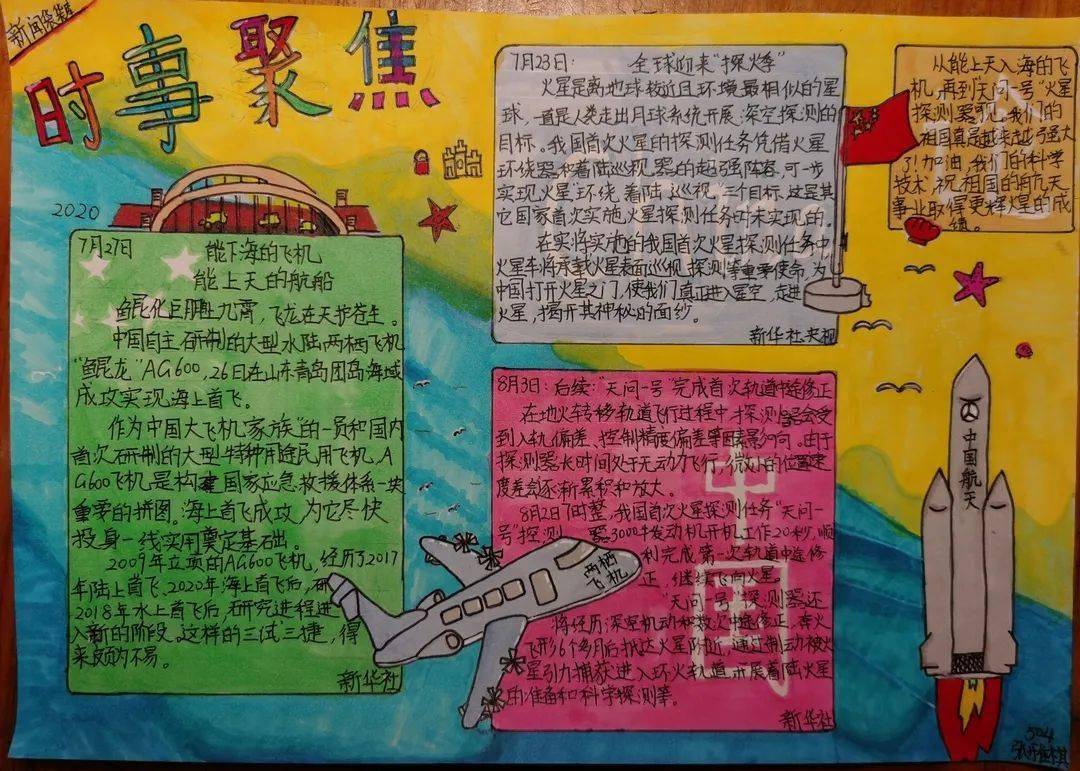 新闻采辑
时事聚焦
2020
7月27日
能下海的飞机
能上天的航船
鲲化巨鹏九霄，飞龙在天护苍生。
中国自主研制的大型水陆两栖飞机
“鲲龙”AG600，26日在山东青岛团岛海域
成功实现海上首飞。
作为中国大飞机“家族”的一员和国内
首次研制的大型特种用途民用飞机，A
G600飞机是构建国家应急救援体系一块
重要的拼图。海上首飞成功，为它尽快
投身一线实用奠定基础。
2009年立项的AG600飞机，经历了2017
年陆上首飞、2020年海上首飞后，研
2018年水上首飞后，研究进程进
入新的阶段。这样的三试三捷，得
来颇为不易。
新华社
7月23日：
全球迎来“探火季”
火星是离地球较近且环境最相似的星
球，一直是人类走出月球系统开展深空探测的
目标。我国首次火星的探测任务凭借火星
环绕器和着陆巡视器的超强阵容，可一步
实现火星环绕、着陆、巡视三个目标，这是其
它国家首次实施火星探测任务时未实现的。
在实将实施的我国首次火星探测任务中，
火星车将承载火星表面巡视探测等重要使命，为
中国打开火星之门，使我们真正进入星空，走进
火星，揭开其神秘的面纱。
新华社.央视
从能上天入海的飞
机，再到“天问一号”火星
探测器，可见，我们的
祖国真是越来越强大
了！加油，我们的科学
技术，祝祖国的航天
事业取得更辉煌的成
绩。
8月3日：后续：“天问一号”完成首次轨道中途修正
在地火转移轨道飞行过程中，探测器会受
到入轨偏差、控制精度偏差等因素影响。由于
探测器长时间处于无动力飞行，微小的位置速
度差会逐渐累积和放大。
8月2日7时整，我国首次火星探测任务“天问一
号”探测器3000N发动机开机工作20秒，顺
利完成第一次轨道中途修
正，继续飞向火星。
“天问一号”探测器还
将经历深空机动和数次中途修正，奔火
飞行6个多月后抵达火星附近，通过制动被火
星引力捕获进入环火轨道，开展着陆火星
的准备和科学探测等。
新华社
中国
两栖
飞机
中国航天
504